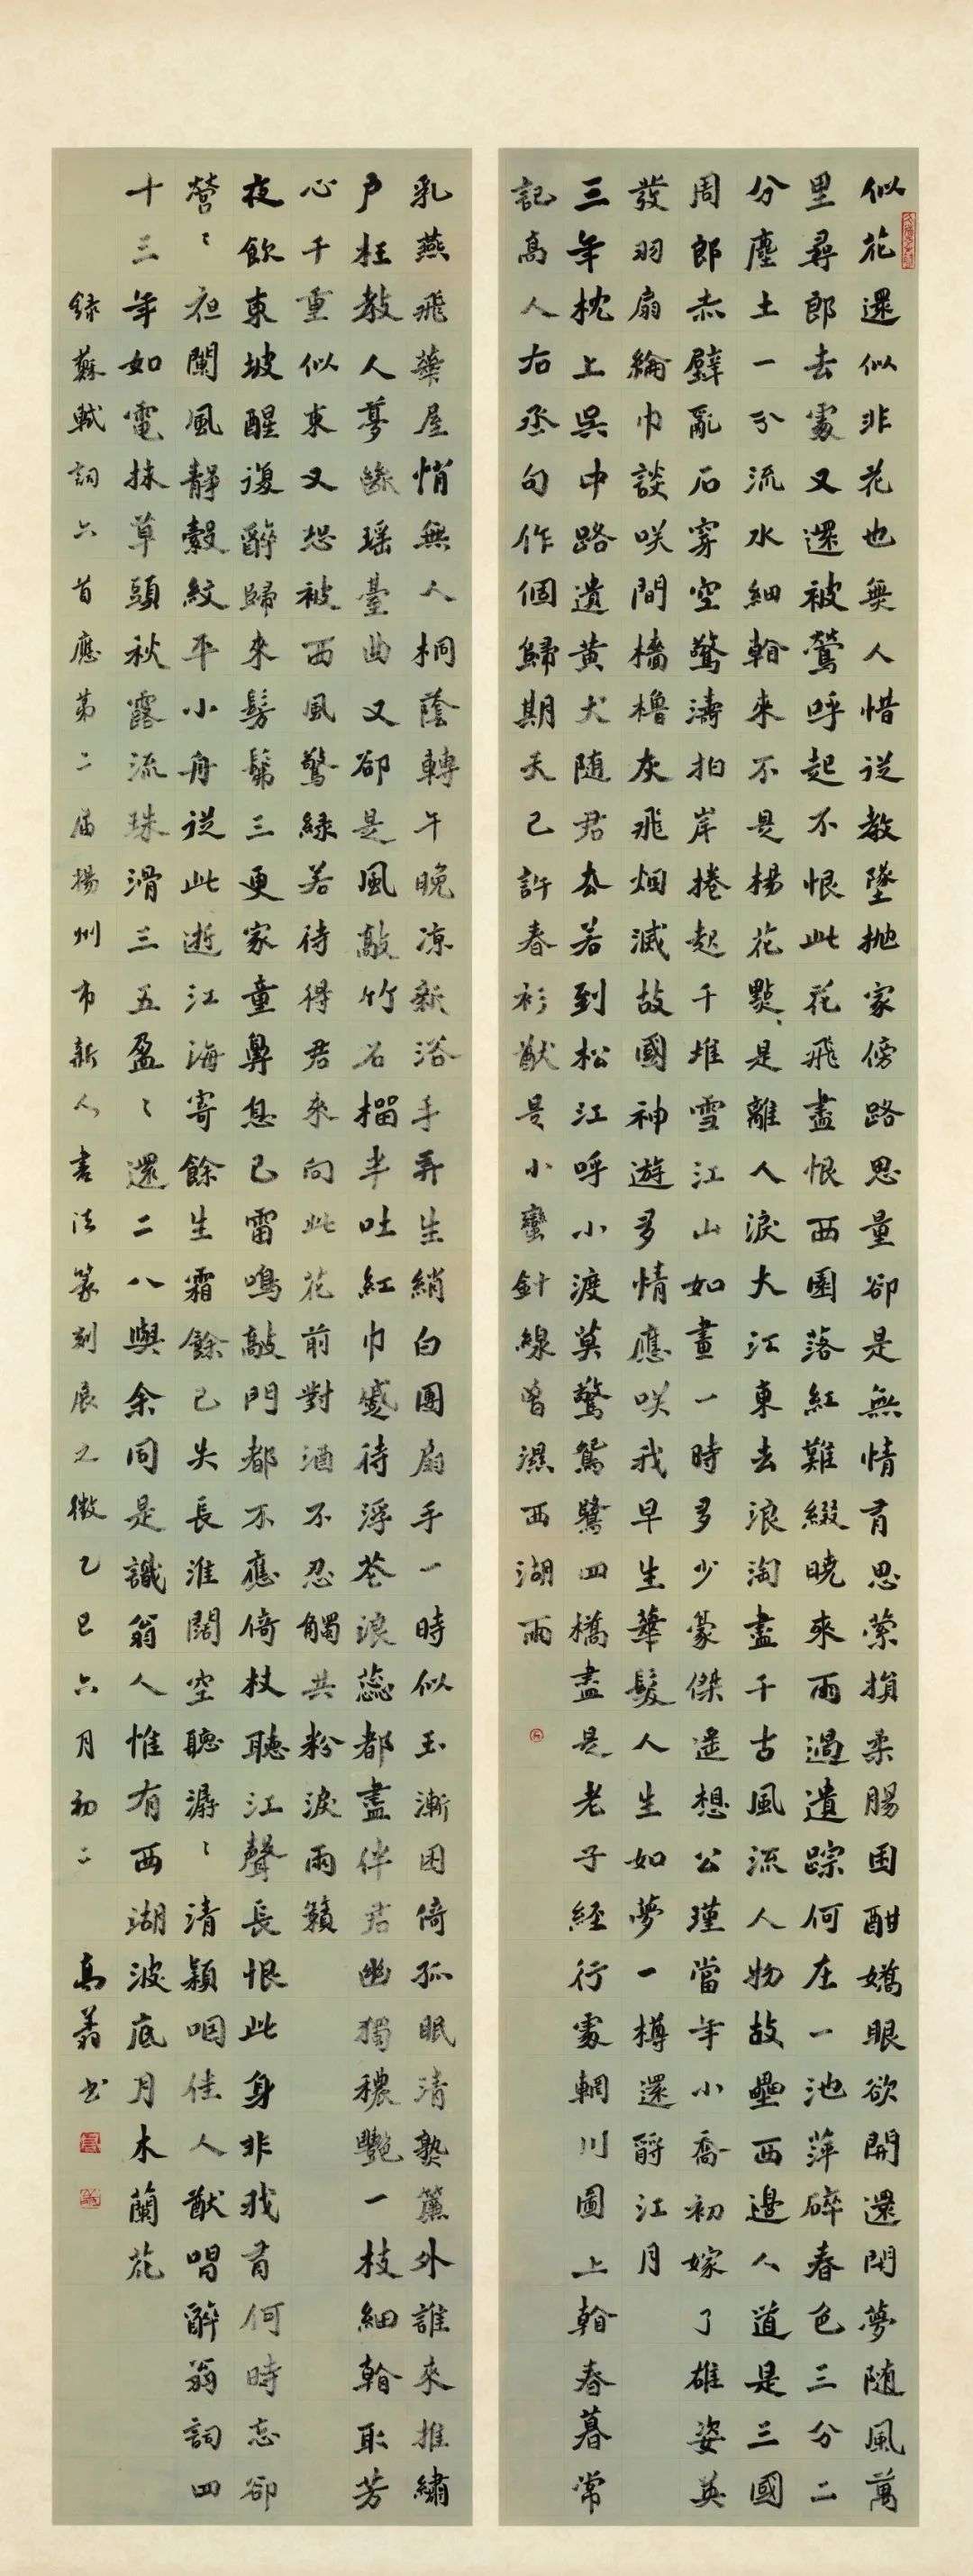 似花還似非花也無人惜從教墜拋家傍路思量卻是無情有思縈損柔腸困酣嬌眼欲開還閉夢隨風萬
里尋郎去處又還被鶯呼起不恨此花飛盡恨西園落紅難綴曉來雨過遺踪何在一池萍碎春色三分二
分塵土一分流水細看來不是楊花點〻是離人淚大江東去浪淘盡千古風流人物故壘西邊人道是三國
周郎赤壁亂石穿空驚濤拍岸捲起千堆雪江山如畫一時多少豪傑遙想公瑾當年小喬初嫁了雄姿英
發羽扇綸巾談咲間檣櫓灰飛烟滅故國神遊多情應咲我早生華髮人生如夢一樽還酹江月
三年枕上吳中路遺黃犬隨君去若到松江呼小渡莫驚鴛鷺四橋盡是老子經行處輞川圖上看春暮常
記高人右丞句作個歸期天已許春衫猷是小蠻針線曾濕西湖雨
乳燕飛華屋悄無人桐蔭轉午晚涼新浴手弄生綃白團扇手一時似玉漸困倚孤眠清熟簾外誰來推繡
戶枉教人夢斷瑤臺曲又卻是風敲竹石榴半吐紅巾蹙待浮花浪蕊都盡伴君幽獨穠艷一枝細看取芳
心千重似束又恐被西風驚綠若待得君來向此花前對酒不忍觸共粉淚雨簌
夜飲東坡醒復醉歸來髣髴三更家童鼻息已雷鳴敲門都不應倚杖聽江聲長恨此身非我有何時忘卻
營〻夜闌風靜縠紋平小舟從此逝江海寄餘生霜餘已失長淮闊空聽潺〻清潁咽佳人猷唱醉翁詞四
十三年如電抹草頭秋露流珠滑三五盈〻還二八與余同是識翁人惟有西湖波底月木蘭花
錄蘇軾詞六首應第二屆揚州市新人書法篆刻展之徵乙巳六月初二 高翥书